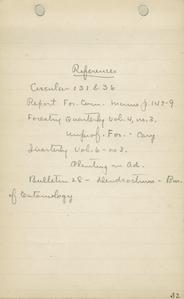 References
Circular 131 & 36
Report For. Com. Maine p. 147-9
Forestry Quarterly Vol. 4, no. 3,
Unprof. For. - Cary
Quarterly Vol. 6 - no 3.
Planting in Ad.
Bulletin 28 - Dendroctonus - Bu.
of Entomology
32